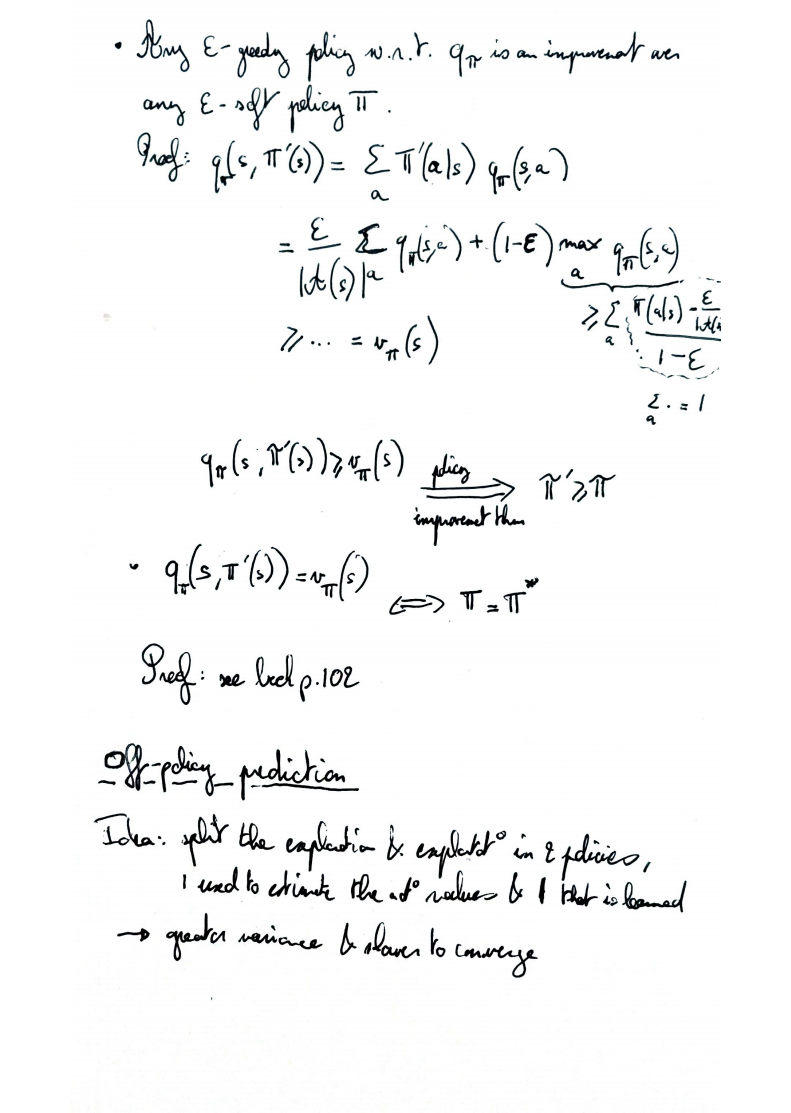 • Any ε-greedy policy w.r.t. q_π is an improvement over
any ε-soft policy π.
Proof: q_π(s, π'(s)) = Σ_a π'(a|s) q_π(s,a)
= ε/|A(s)| Σ_a q_π(s,a) + (1-ε) max_a q_π(s,a)
≥ Σ_a (π(a|s) - ε/|A(s)) / (1-ε)
≥ ... = v_π(s)
Σ_a . = 1
q_π(s, π'(s)) ≥ v_π(s) policy improvement thm ⟹ π' ≥ π
• q_π(s, π'(s)) = v_π(s) ⟺ π = π*
Proof: see book p.102
Off-policy prediction
Idea: split the exploration & exploitat° in 2 policies,
1 used to estimate the act° values & 1 that is learned
→ greater variance & slower to converge